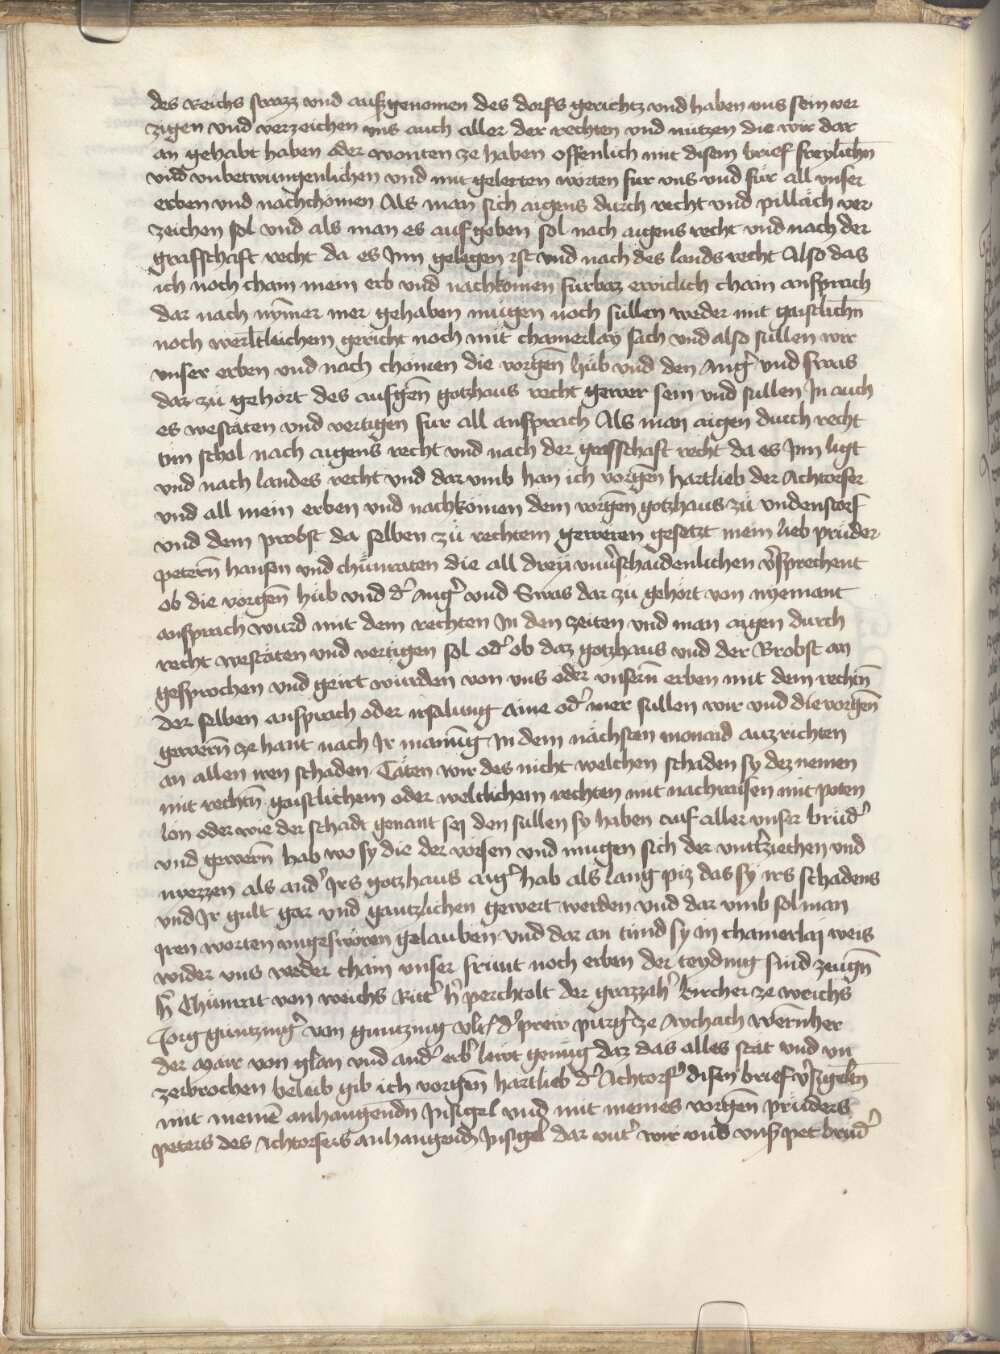 des Reichs strazz vnd aufzgenomen des dorfs gerichtz vnd haben vns sein ver
zigen vnd verzeichen vns auch aller der rechten vnd nutzen die wir dar
an gehabt haben oder wonten ze haben offenlich mit disem brief freylichn̄
vnd vnbetwungenlichen vnd mit gelerten worten fur vns vnd für all vnser
erben vnd nachchömen Als man sich aigens durch recht vnd pilläch ver
zeichen sol vnd als man es aufgeben sol nach aigens recht vnd nach der
graffschaft recht da es Inn gelegen ist vnd nach des lands recht Also das
ich noch chain mein erb vnd nachkomen furbaz ewiclich chain ansprach
dar nach nym̄er mer gehaben mügen noch sullen weder mit gaistlichn̄
noch werltleichem gericht noch mit chainerlay sach vnd also sullen wir
vnser erben vnd nach chömen die vorgen̄ hůb vnd den Angˀ vnd swas
daz zü gehört des aufgen̄ gotzhaus recht gewer sein vnd sullen In auch
es westäten vnd vertigen fur all ansprach Als man aigen durch recht
tun schol nach aigens recht vnd nach der graffschaft recht da es Inn ligt
vnd nach landes recht vnd dar vmb han ich vorgen̄ hartlieb der Achtorfer
vnd all mein erben vnd nachkömen dem vorgen̄ gotzhaus zü vndenstorf
vnd dem probst da selben zü rechtem geweren gesetzt mein lieb prüder
petern̄ hansen vnd chünraten die all dreyi vnuˀschaidenlichen vˀsprechent
ob die vorgen̄ hüb vnd dˀ Angˀ vnd Swas dar zu gehört von nyemant
ansprach wurd mit dem rechten In den zeiten vnd man aigen durch
recht westäten vnd vertigen sol odˀ ob daz gotzhaus vnd der Brobst an
gesprochen vnd geirrt wurden von vns oder vnsern̄ erben mit dem rechtn̄
der selben ansprach oder irsalung aine odˀ mer sullen wir vnd die vorgen̄
gewern̄ ze hant nach Ir manūg In dem nächsten monaid auzrichten
an allen iren schaden Täten wir des nicht welchen schaden sy dez nemen
mit rechtn̄ gaistlichem oder weltlichem rechten mit nachraisen mit poten
lon oder wie der schadt genant sei den sullen sy haben auf aller vnser brüdˀ
vnd gewern̄ hab wo sy die der voisen vnd mugen sich der vntˀziechen vnd
niezzen als andˀ Irs gotzhaus aigˀ hab als lang piz das sy irs schadens
vnd Ir gült gar vnd gäntzlichen gewert werden vnd dar vmb sol man
iren worten vngesworen gelauben vnd dar an tund sy in chainerlaj weis
wider vns weder chain vnser frünt noch erben der teyding sind zeugn̄
hˀ Chünrat von weichs Rittˀ hˀ perchtolt der grazzahˀ kircher ze weichs
Jorg guntzingˀ von guntzing vlr̄ dˀ prew purgˀ ze Aychach wernher
der mair von glan vnd andˀ erbˀ lewt genüg daz das alles stät vnd vn
zerbrochen beleib gib ich vorgen̄ hartlieb dˀ Achtorfˀ disen brief vˀsigeltn̄
mit meinē anhangendn̄ Insigel vnd mit meines vorgen̄ prüders
peters des Achtorfers anhangendn̄ Insigel dar vntˀ wir vnd vnsˀ pet brüdˀ